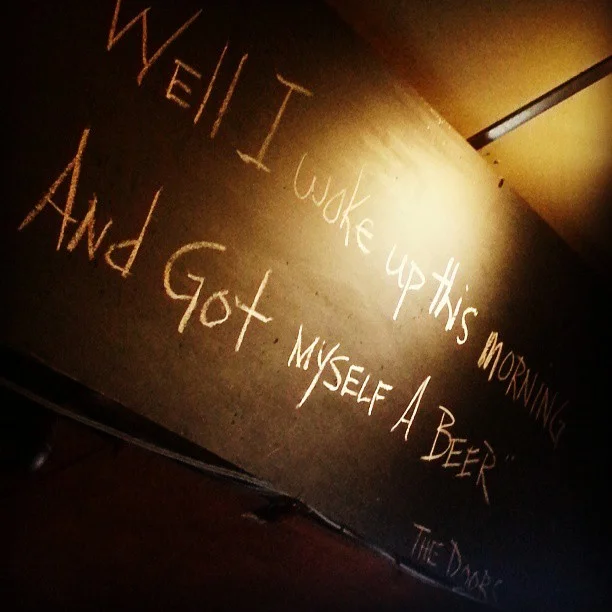 Well I woke up this MORNING
And Got MYSELF A BEER"
THE DOORS